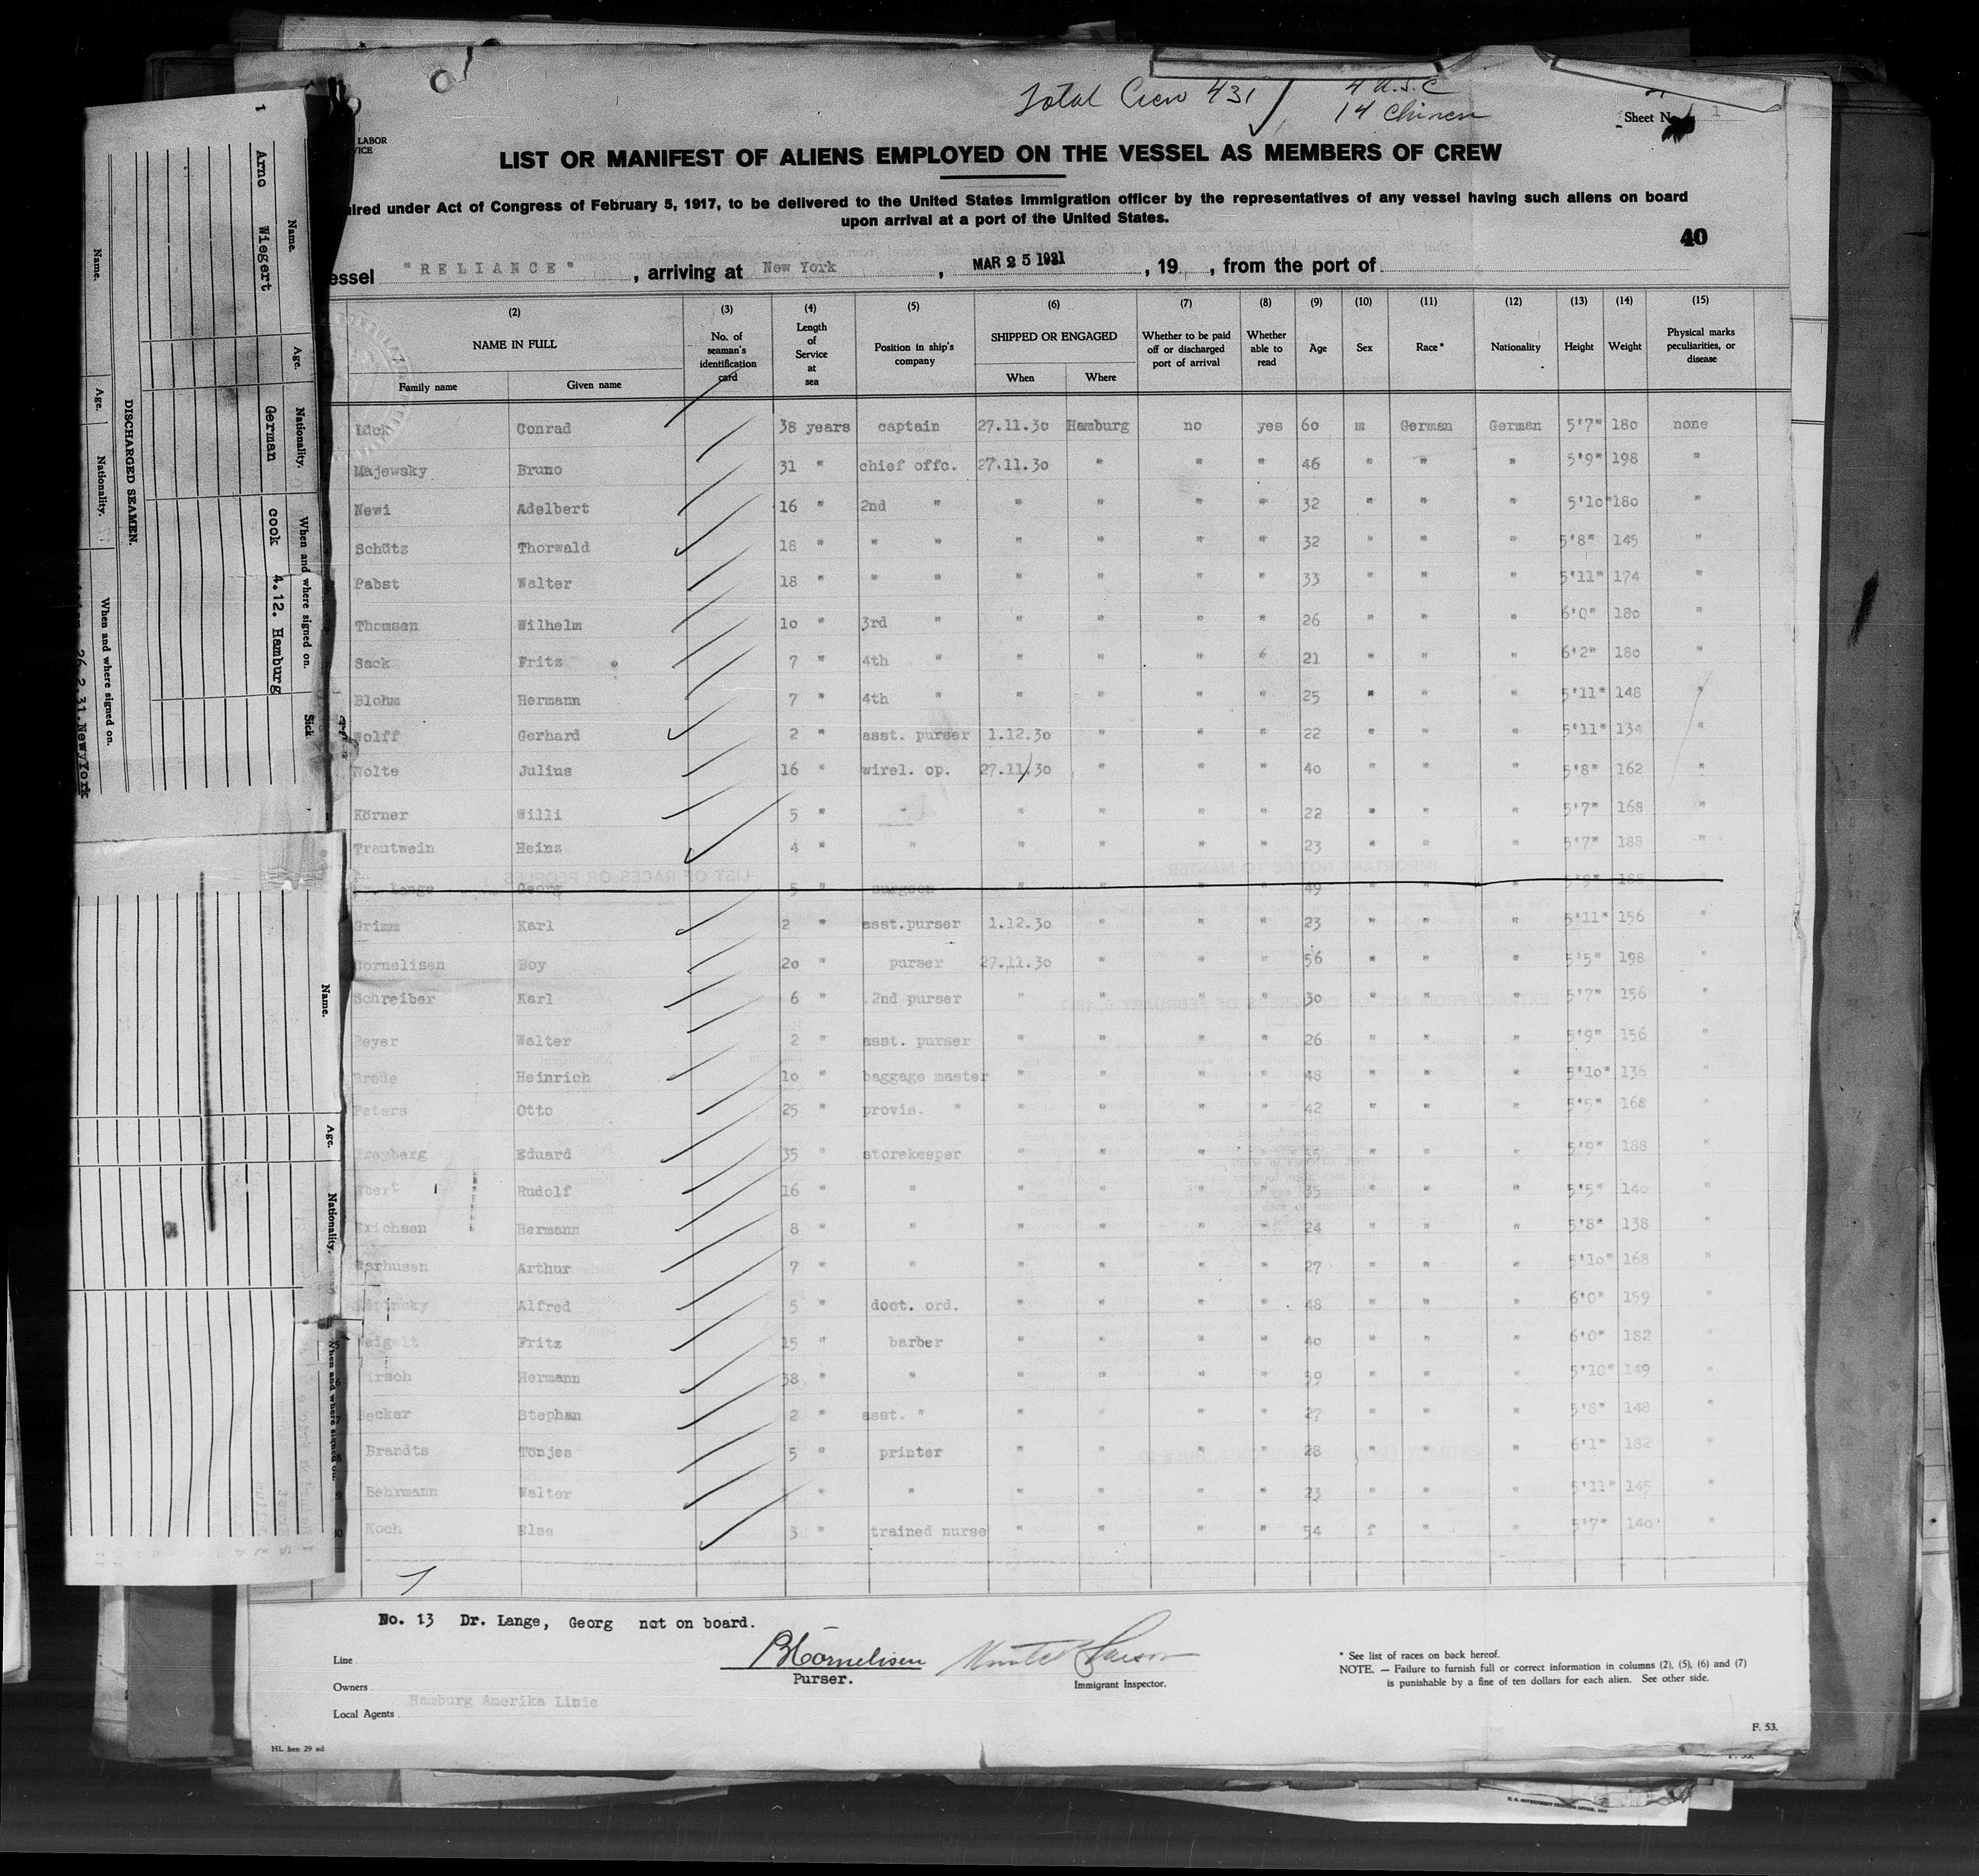 Total Crew 431 4 U.S.C
14 Chinese
Sheet No. 1
LABOR
VICE
LIST OR MANIFEST OF ALIENS EMPLOYED ON THE VESSEL AS MEMBERS OF CREW
uired under Act of Congress of February 5, 1917, to be delivered to the United States immigration officer by the representatives of any vessel having such aliens on board
upon arrival at a port of the United States.
40
essel "RELIANCE", arriving at New York, MAR 25 1931, 19 , from the port of
(2) (3) (4) (5) (6) (7) (8) (9) (10) (11) (12) (13) (14) (15)
NAME IN FULL No. of seaman's identification card Length of Service at sea Position in ship's company SHIPPED OR ENGAGED Whether to be paid off or discharged port of arrival Whether able to read Age Sex Race* Nationality Height Weight Physical marks peculiarities, or disease
Family name Given name When Where
Lück Conrad 38 years captain 27.11.30 Hamburg no yes 60 m German German 5'7" 180 none
Majewsky Bruno 31 " chief offc. 27.11.30 " " " 46 " " " 5'9" 198 "
Newi Adelbert 16 " 2nd " " " " " 32 " " " 5'10" 180 "
Schütz Thorwald 18 " " " " " " " 32 " " " 5'8" 145 "
Pabst Walter 18 " " " " " " " 33 " " " 5'11" 174 "
Thomsen Wilhelm 10 " 3rd " " " " " 26 " " " 6'0" 180 "
Sack Fritz 7 " 4th " " " " " 21 " " " 6'2" 180 "
Blohm Hermann 7 " 4th " " " " " 25 " " " 5'11" 148 "
Wolff Gerhard 2 " asst. purser 1.12.30 " " " 22 " " " 5'11" 134 "
Nolte Julius 16 " wirel. op. 27.11.30 " " " 40 " " " 5'8" 162 "
Körner Willi 5 " " " " " " 22 " " " 5'7" 168 "
Trautwein Heinz 4 " " " " " " 23 " " " 5'7" 188 "
Dr. Lange Georg 5 " surgeon " " " " 49 " " " 5'9" 188
Grimm Karl 2 " asst.purser 1.12.30 " " " 23 " " " 5'11" 156 "
Cornelisen Boy 20 " purser 27.11.30 " " " 56 " " " 5'5" 198 "
Schreiber Karl 6 " 2nd purser " " " " 30 " " " 5'7" 156 "
Beyer Walter 2 " asst. purser " " " " 26 " " " 5'9" 156 "
Brede Heinrich 10 " baggage master " " " " 48 " " " 5'10" 136 "
Peters Otto 25 " provis. " " " " " 42 " " " 5'5" 168 "
Freyberg Eduard 35 " storekeeper " " " " 55 " " " 5'9" 188 "
Rudolf 16 " " " " " " 35 " " " 5'5" 140 "
Erichsen Hermann 8 " " " " " " 24 " " " 5'8" 138 "
Arthur 7 " " " " " " 27 " " " 5'10" 168 "
Alfred 5 " doct. ord. " " " " 48 " " " 6'0" 159 "
Weigelt Fritz 15 " barber " " " " 40 " " " 6'0" 182 "
Hirsch Hermann 38 " " " " " " 59 " " " 5'10" 149 "
Becker Stephan 2 " asst. " " " " " 27 " " " 5'8" 148 "
Brandts Tönjes 5 " printer " " " " 28 " " " 6'1" 182 "
Behrmann Walter " " " " " " 23 " " " 5'11" 145 "
Koch Else 3 " trained nurse " " " " 54 f " " 5'7" 140 "
No. 13 Dr. Lange, Georg not on board.
BCornelisen
Purser.
Immigrant Inspector.
Line
Owners
Hamburg Amerika Linie
Local Agents
* See list of races on back hereof.
NOTE. — Failure to furnish full or correct information in columns (2), (5), (6) and (7)
is punishable by a fine of ten dollars for each alien. See other side.
F. 53.
1
Name. Age. Nationality. When and where signed on. Sick
Arno Wiegert German cook 4.12. Hamburg
DISCHARGED SEAMEN.
Name. Age. Nationality. When and where signed on.
26.2.31.New York
Name. Age. Nationality. When and where signed on.